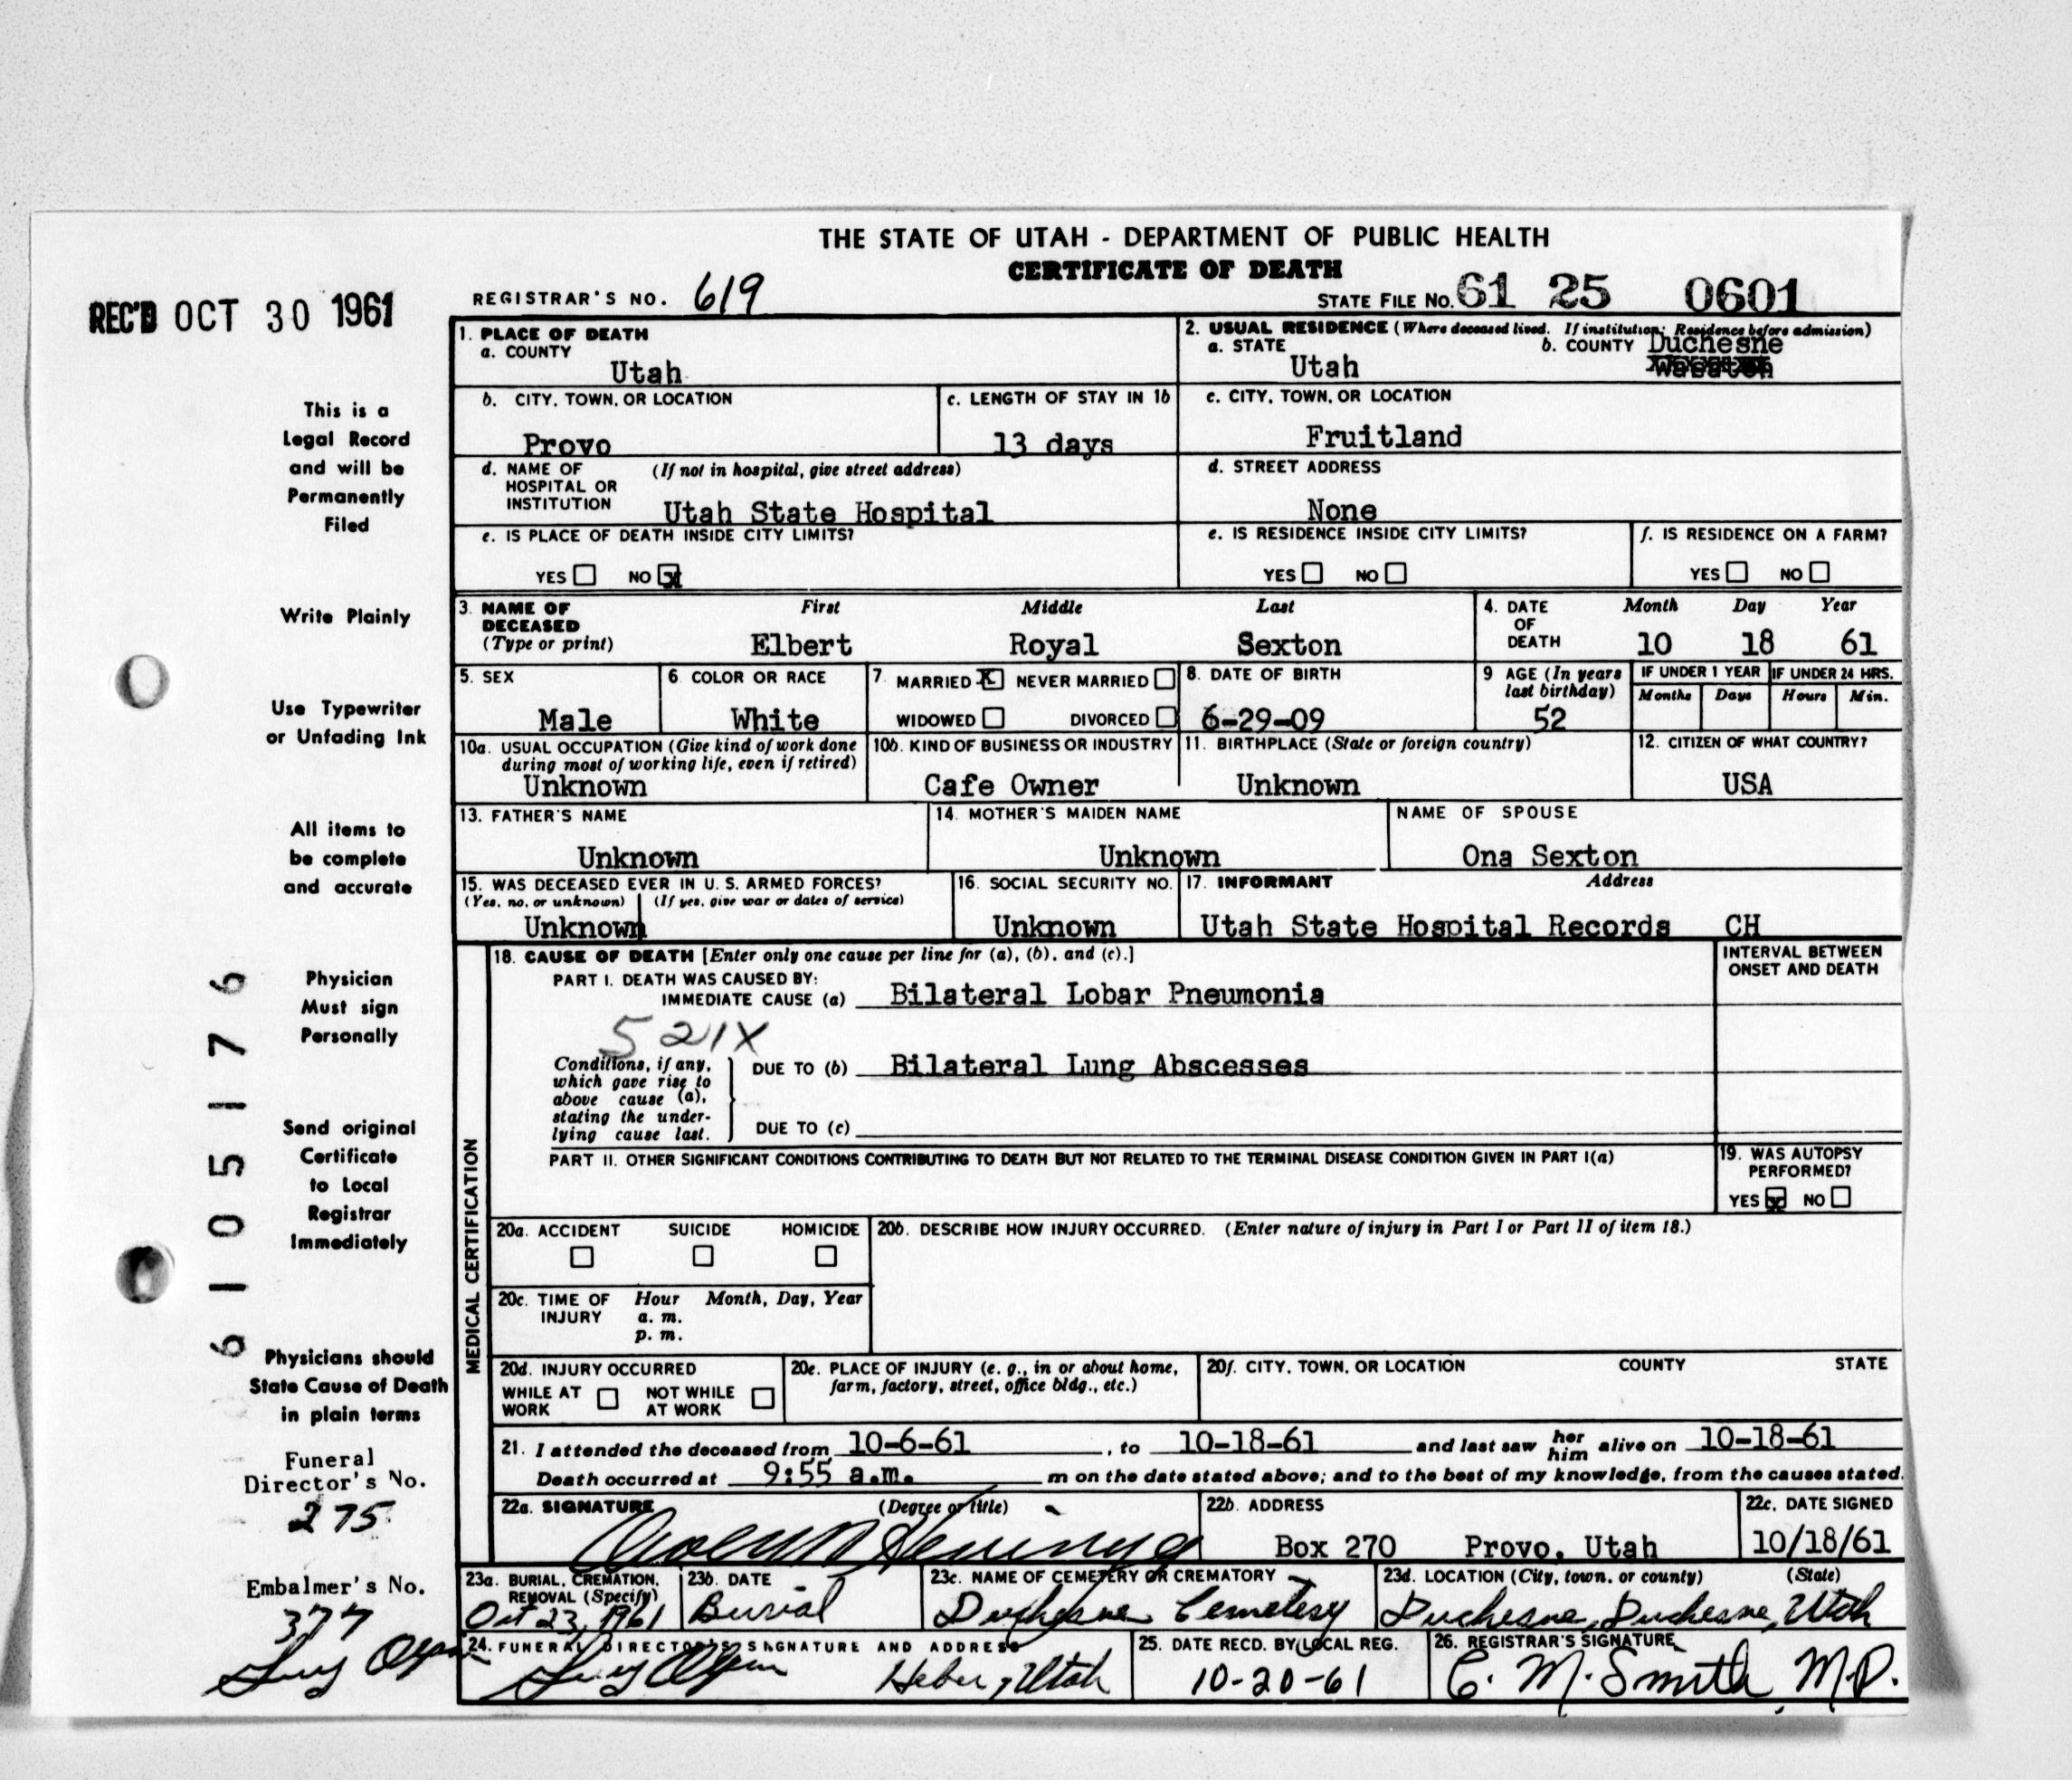 THE STATE OF UTAH - DEPARTMENT OF PUBLIC HEALTH
CERTIFICATE OF DEATH
REC'D OCT 30 1961
REGISTRAR'S NO. 619
STATE FILE NO. 61 25 0601
This is a
Legal Record
and will be
Permanently
Filed
Write Plainly
Use Typewriter
or Unfading Ink
All items to
be complete
and accurate
Physician
Must sign
Personally
Send original
Certificate
to Local
Registrar
Immediately
Physicians should
State Cause of Death
in plain terms
Funeral
Director's No.
275
Embalmer's No.
377
6105176
1. PLACE OF DEATH
a. COUNTY
Utah
2. USUAL RESIDENCE (Where deceased lived. If institution: Residence before admission)
a. STATE
Utah
b. COUNTY Duchesne
Wasatch
b. CITY, TOWN, OR LOCATION
Provo
c. LENGTH OF STAY IN 1b
13 days
c. CITY, TOWN, OR LOCATION
Fruitland
d. NAME OF (If not in hospital, give street address)
HOSPITAL OR
INSTITUTION Utah State Hospital
d. STREET ADDRESS
None
e. IS PLACE OF DEATH INSIDE CITY LIMITS?
YES NO X
e. IS RESIDENCE INSIDE CITY LIMITS?
YES NO
f. IS RESIDENCE ON A FARM?
YES NO
3. NAME OF DECEASED (Type or print)
First Middle Last
Elbert Royal Sexton
4. DATE OF DEATH
Month Day Year
10 18 61
5. SEX
Male
6. COLOR OR RACE
White
7. MARRIED X NEVER MARRIED
WIDOWED DIVORCED
8. DATE OF BIRTH
6-29-09
9 AGE (In years last birthday)
52
IF UNDER 1 YEAR
Months Days
IF UNDER 24 HRS.
Hours Min.
10a. USUAL OCCUPATION (Give kind of work done
during most of working life, even if retired)
Unknown
10b. KIND OF BUSINESS OR INDUSTRY
Cafe Owner
11. BIRTHPLACE (State or foreign country)
Unknown
12. CITIZEN OF WHAT COUNTRY?
USA
13. FATHER'S NAME
Unknown
14. MOTHER'S MAIDEN NAME
Unknown
NAME OF SPOUSE
Ona Sexton
15. WAS DECEASED EVER IN U. S. ARMED FORCES?
(Yes, no, or unknown) (If yes, give war or dates of service)
Unknown
16. SOCIAL SECURITY NO.
Unknown
17. INFORMANT Address
Utah State Hospital Records CH
MEDICAL CERTIFICATION
18. CAUSE OF DEATH [Enter only one cause per line for (a), (b), and (c).]
INTERVAL BETWEEN
ONSET AND DEATH
PART I. DEATH WAS CAUSED BY:
IMMEDIATE CAUSE (a) Bilateral Lobar Pneumonia
521X
Conditions, if any,
which gave rise to
above cause (a),
stating the under-
lying cause last.
DUE TO (b) Bilateral Lung Abscesses
DUE TO (c)
PART II. OTHER SIGNIFICANT CONDITIONS CONTRIBUTING TO DEATH BUT NOT RELATED TO THE TERMINAL DISEASE CONDITION GIVEN IN PART I(a)
19. WAS AUTOPSY
PERFORMED?
YES X NO
20a. ACCIDENT SUICIDE HOMICIDE
20b. DESCRIBE HOW INJURY OCCURRED. (Enter nature of injury in Part I or Part II of item 18.)
20c. TIME OF INJURY Hour Month, Day, Year
a. m.
p. m.
20d. INJURY OCCURRED
WHILE AT WORK NOT WHILE AT WORK
20e. PLACE OF INJURY (e. g., in or about home,
farm, factory, street, office bldg., etc.)
20f. CITY, TOWN, OR LOCATION COUNTY STATE
21. I attended the deceased from 10-6-61, to 10-18-61 and last saw her him alive on 10-18-61
Death occurred at 9:55 a.m. m on the date stated above; and to the best of my knowledge, from the causes stated.
22a. SIGNATURE (Degree or title)
22b. ADDRESS
Box 270 Provo, Utah
22c. DATE SIGNED
10/18/61
23a. BURIAL, CREMATION,
REMOVAL (Specify)
Oct 23, 1961
23b. DATE
Burial
23c. NAME OF CEMETERY OR CREMATORY
Duchesne Cemetery
23d. LOCATION (City, town, or county) (State)
Duchesne, Duchesne, Utah
24. FUNERAL DIRECTOR'S SIGNATURE AND ADDRESS
Heber, Utah
25. DATE RECD. BY LOCAL REG.
10-20-61
26. REGISTRAR'S SIGNATURE
C. M. Smith, M.D.